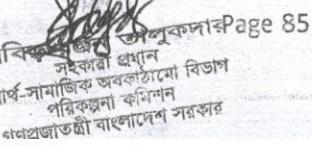 তালুকদারPage 85
সহকারী প্রধান
আর্থ-সামাজিক অবকাঠামো বিভাগ
পরিকল্পনা কমিশন
গণপ্রজাতন্ত্রী বাংলাদেশ সরকার